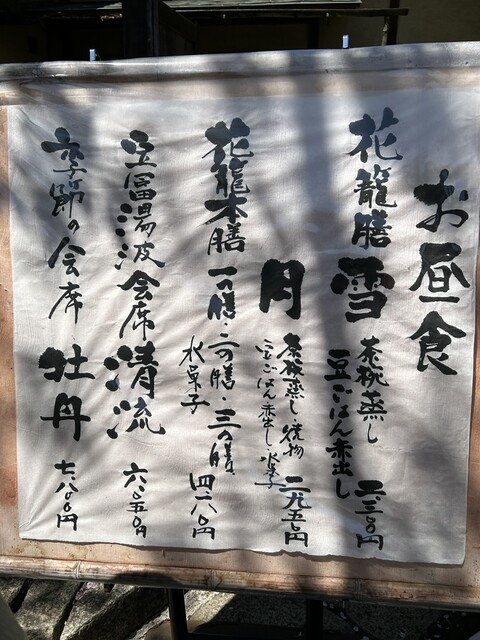 お昼食
花籠膳 雪 茶碗蒸し
豆ごはん赤出し 二三一〇円
月 茶碗蒸し・焼物
豆ごはん赤出し・水菓子 二九五〇円
花籠本膳 一の膳・二の膳・三の膳
水菓子 四一八〇円
豆富湯波会席 清流 六、〇五〇円
季節の会席 牡丹 七、八〇〇円